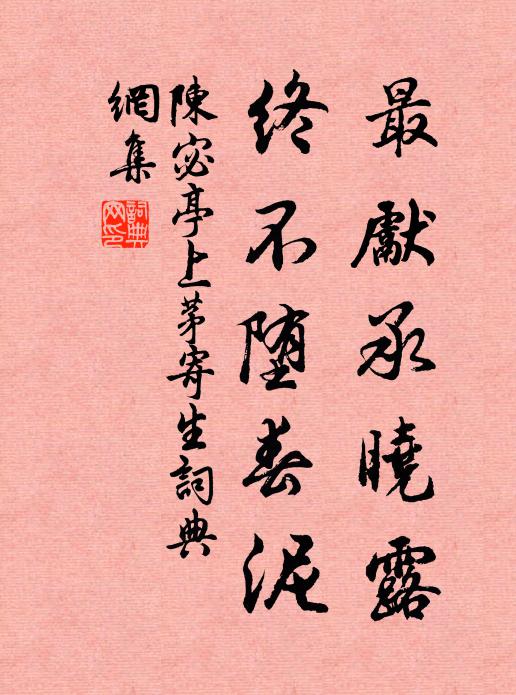 最獻承曉露
終不堕春泥
陳宓亭上茅寄生詞典
網集
詞典
網印